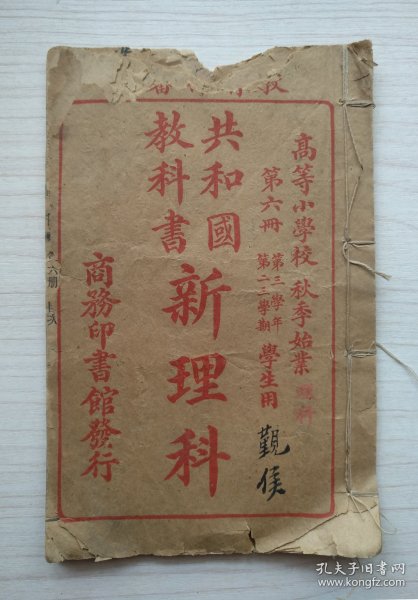 高等小學校 秋季始業
第六冊 第三學年 第二三學期 學生用
共和國
教科書
新理科
商務印書館發行
觀侯
六册
孔夫子旧书网
www.kongfz.com